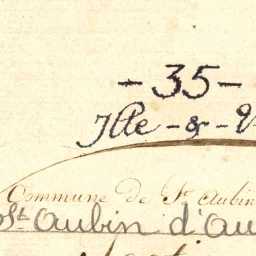 - 35 -
Ille - & - V
Commune de St Aubin
St Aubin d'Au